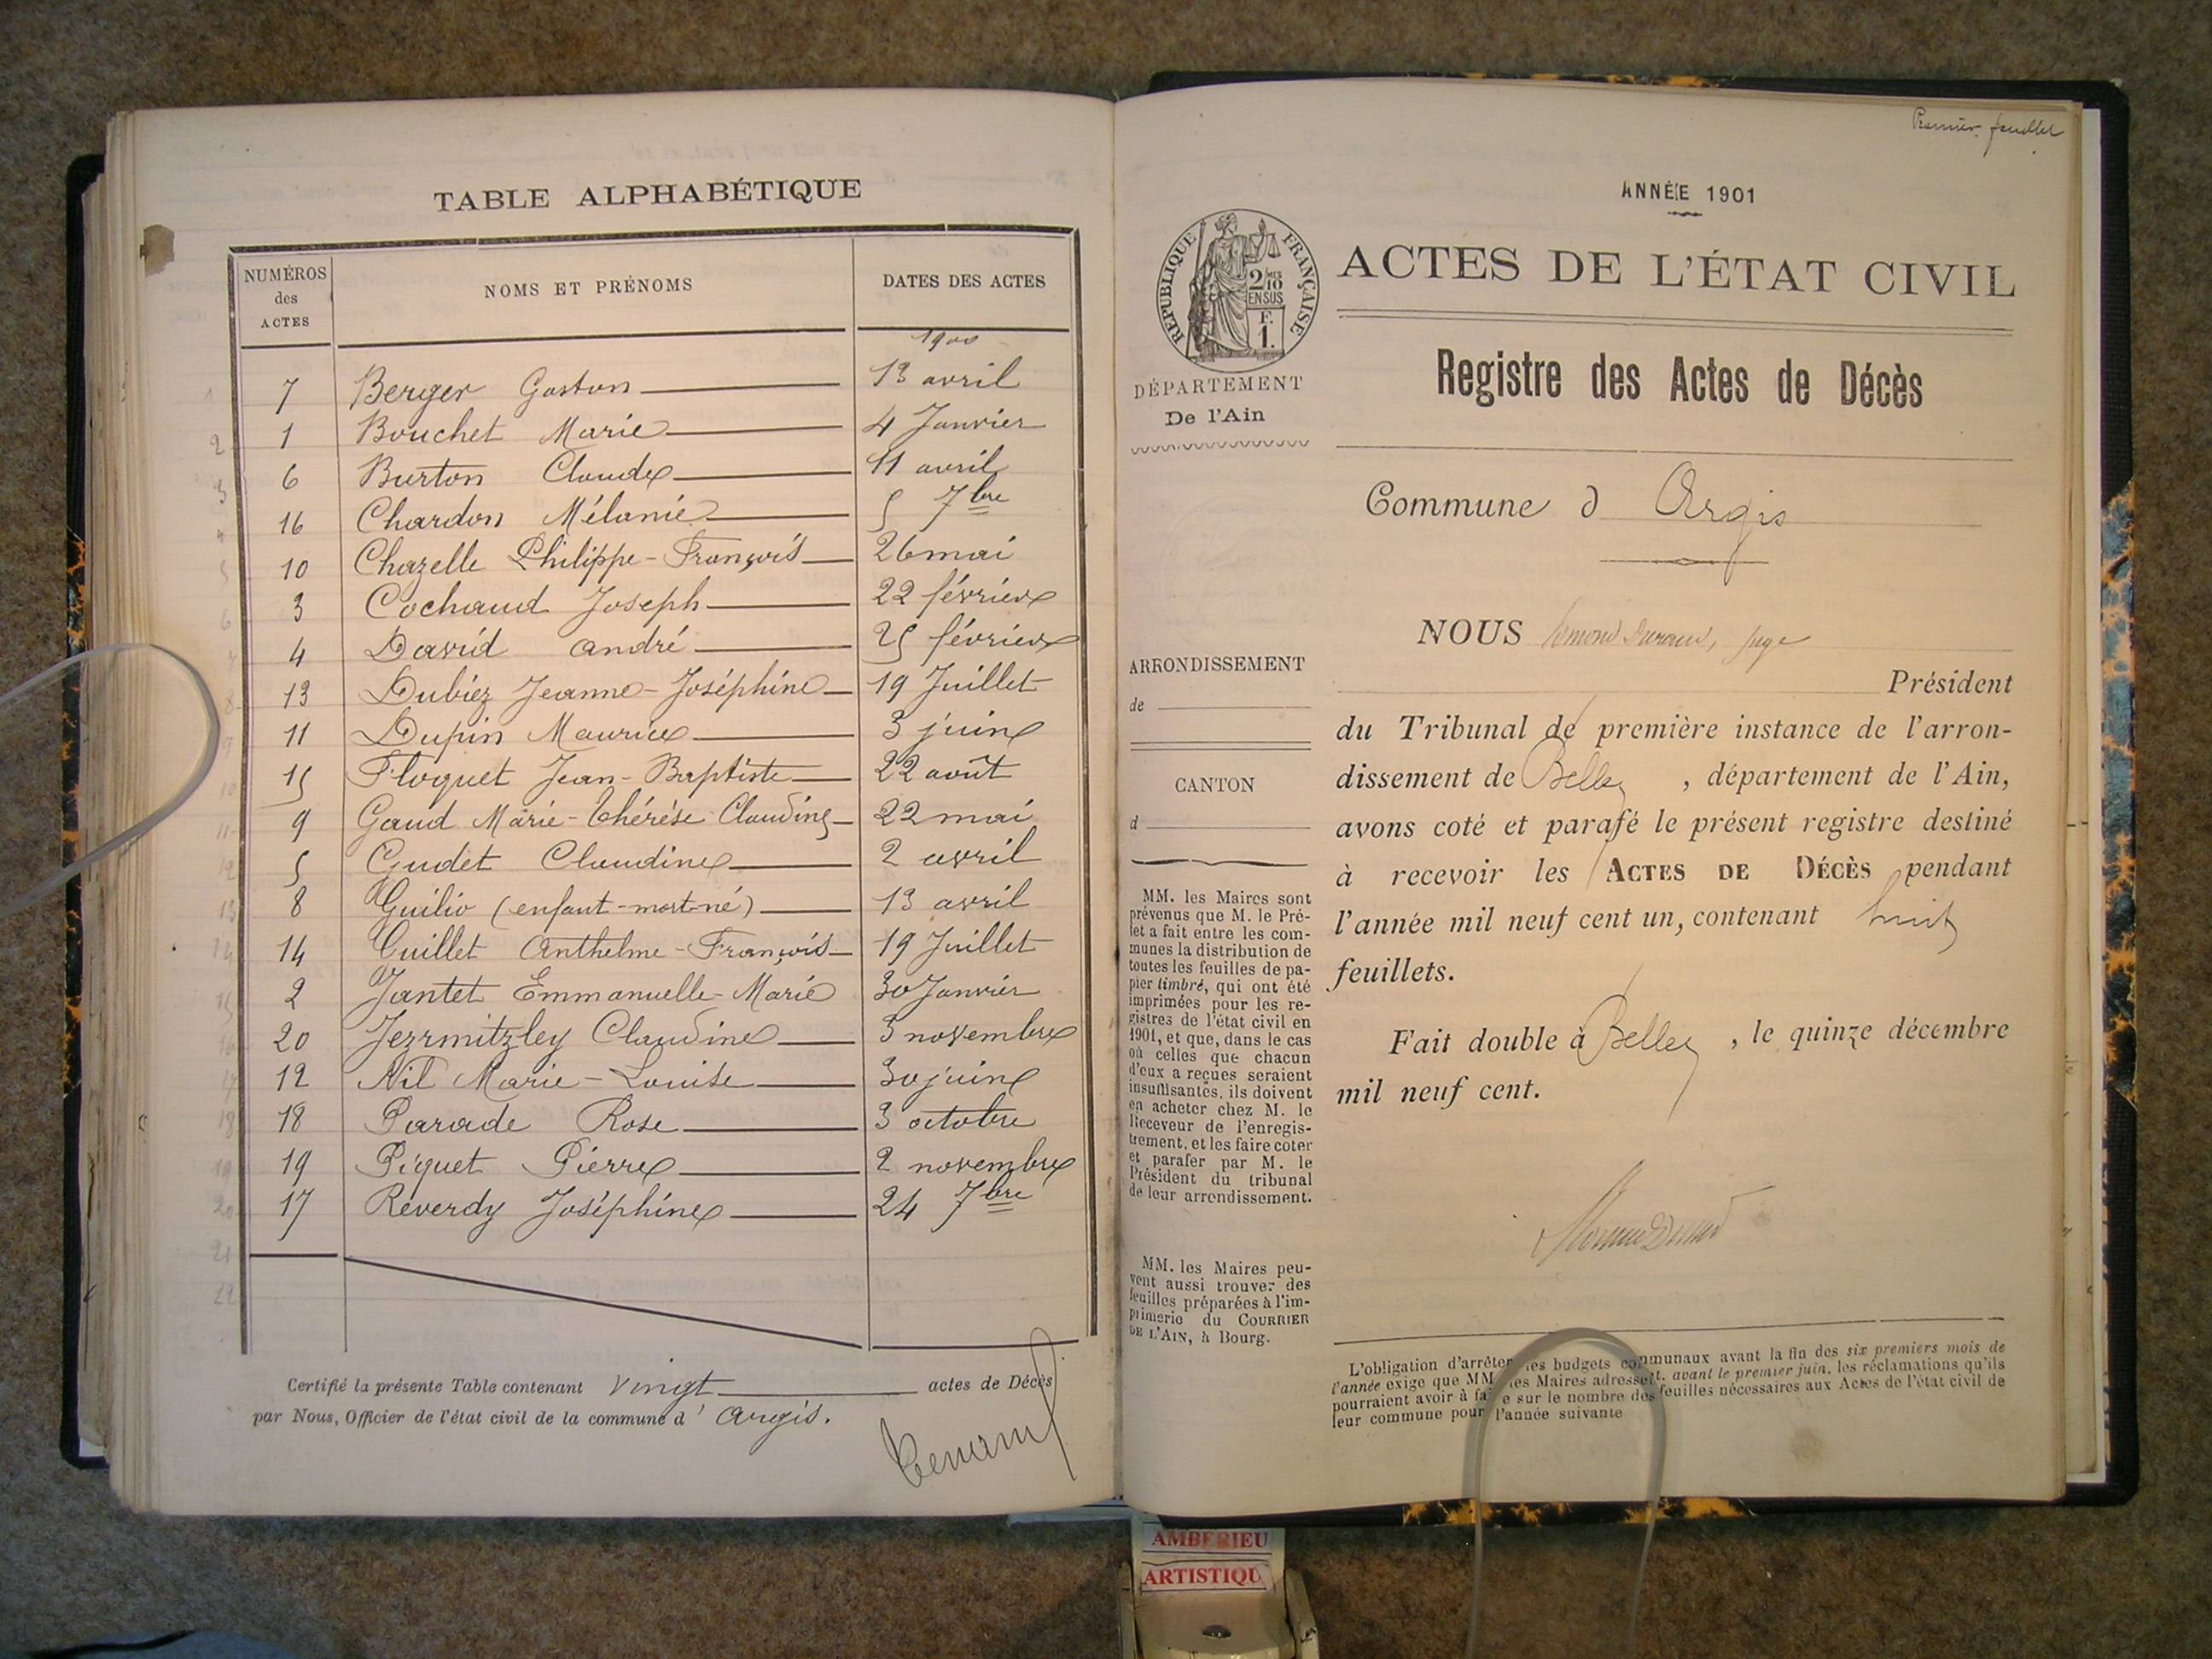 TABLE ALPHABÉTIQUE
NUMÉROS des ACTES NOMS ET PRÉNOMS DATES DES ACTES
1900
7 Berger Gaston 13 avril
1 Bouchet Marie 4 Janvier
6 Burton Claude 11 avril
16 Chardon Mélanie 5 7bre
10 Chazelle Philippe-François 26 mai
3 Cochaud Joseph 22 février
4 David andré 25 février
13 Dubiez Jeanne-Joséphine 19 Juillet
11 Dupin Maurice 3 juin
15 Floquet Jean-Baptiste 22 août
9 Gaud Marie-Thérèse Claudine 22 mai
5 Gudet Claudine 2 avril
8 Guilio (enfant-mort-né) 13 avril
14 Guillet Anthelme-François 19 Juillet
2 Jantet Emmanuelle-Marie 30 Janvier
20 Jezrmitzley Claudine 3 novembre
12 Nil Marie-Louise 30 juin
18 Parade Rose 3 octobre
19 Piquet Pierre 2 novembre
17 Reverdy Joséphine 24 7bre
Certifié la présente Table contenant Vingt actes de Décès
par Nous, Officier de l'état civil de la commune d' Argis.
Premier feuillet
ANNÉE 1901
RÉPUBLIQUE FRANÇAISE
2/10
EN SUS
F.
1.
DÉPARTEMENT
De l'Ain
ARRONDISSEMENT
de
CANTON
d
MM. les Maires sont
prévenus que M. le Pré-
fet a fait entre les com-
munes la distribution de
toutes les feuilles de pa-
pier timbré, qui ont été
imprimées pour les re-
gistres de l'état civil en
1901, et que, dans le cas
où celles que chacun
d'eux a reçues seraient
insuffisantes, ils doivent
en acheter chez M. le
Receveur de l'enregis-
trement, et les faire coter
et parafer par M. le
Président du tribunal
de leur arrondissement.
MM. les Maires peu-
vent aussi trouver des
feuilles préparées à l'im-
primerie du COURRIER
DE L'AIN, à Bourg.
ACTES DE L'ÉTAT CIVIL
Registre des Actes de Décès
Commune d Argis
NOUS juge
Président
du Tribunal de première instance de l'arron-
dissement de Belley, département de l'Ain,
avons coté et parafé le présent registre destiné
à recevoir les ACTES DE DÉCÈS pendant
l'année mil neuf cent un, contenant huit
feuillets.
Fait double à Belley, le quinze décembre
mil neuf cent.
L'obligation d'arrêter les budgets communaux avant la fin des six premiers mois de
l'année exige que MM. les Maires adressent, avant le premier juin, les réclamations qu'ils
pourraient avoir à faire sur le nombre des feuilles nécessaires aux Actes de l'état civil de
leur commune pour l'année suivante
AMBERIEU
ARTISTIQU